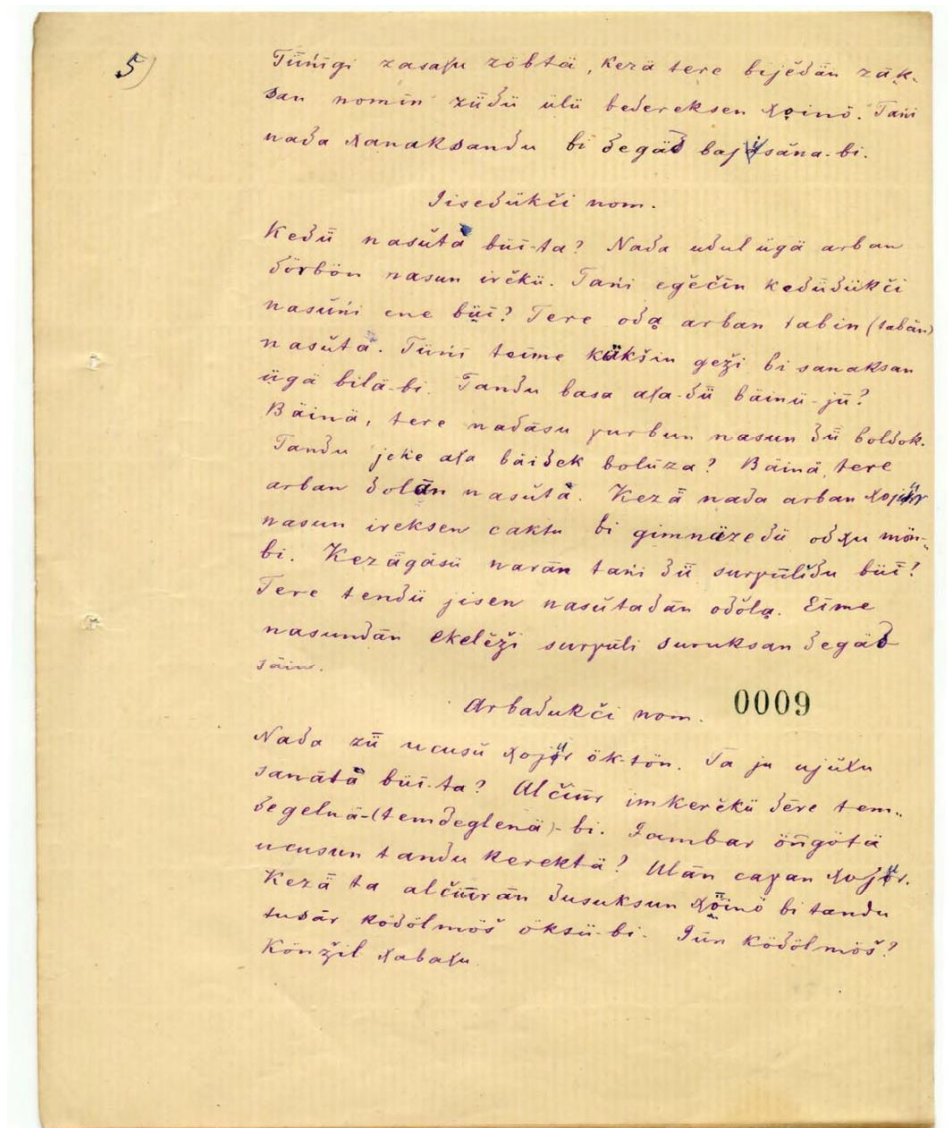 5)
Tünīgi zasaxu zöbtä, kezä tere bijēdän zäk-
san nomīn züdü ülü bedereksen xoinö. Tani
nada xanaksandu bi degäd bajisäna-bi.
Jisedükči nom.
Kedǖ nasūtā büi-ta? Nada udul ügä arban
dörbön nasun irčkü. Tani egēčīn kedüdükči
nasūni ene büī? Tere oda arban tabin (tabān)
nasūtā. Tünī teime kükšin geži bi sanaksan
ügä bilä-bi. Tandu basa axa-dü bäinü-jü?
Bäinä, tere nadāsu γurbun nasun dü boldok.
Tandu jeke axa bäidek bolūza? Bäinä, tere
arban dolān nasūtā. Kezä nada arban xojür
nasun ireksen caktu bi gimnäzedü odxu mön-
bi. Kezägäsü narān tani dǖ surγūlidu büi?
Tere tendü jisen nasūtadān odōla. Eime
nasundān ekelēži surγūli suruksan degäd
säin.
Arbadukči nom. 0009
Nada zü ucusū xojür ök-tön. Ta ju ujūxu
sanātā büi-ta? Alčūr imkerčkü dēre tem-
degelnä-(temdeglenä)-bi. Jambar öŋgötä
ucusun tandu kerektä? Ulān caγan xojür.
Kezä ta alčūrān dusuksun xöinö bi tandu
tusār ködölmöš öksü-bi. Jün ködölmöš?
Könžil xabaxu